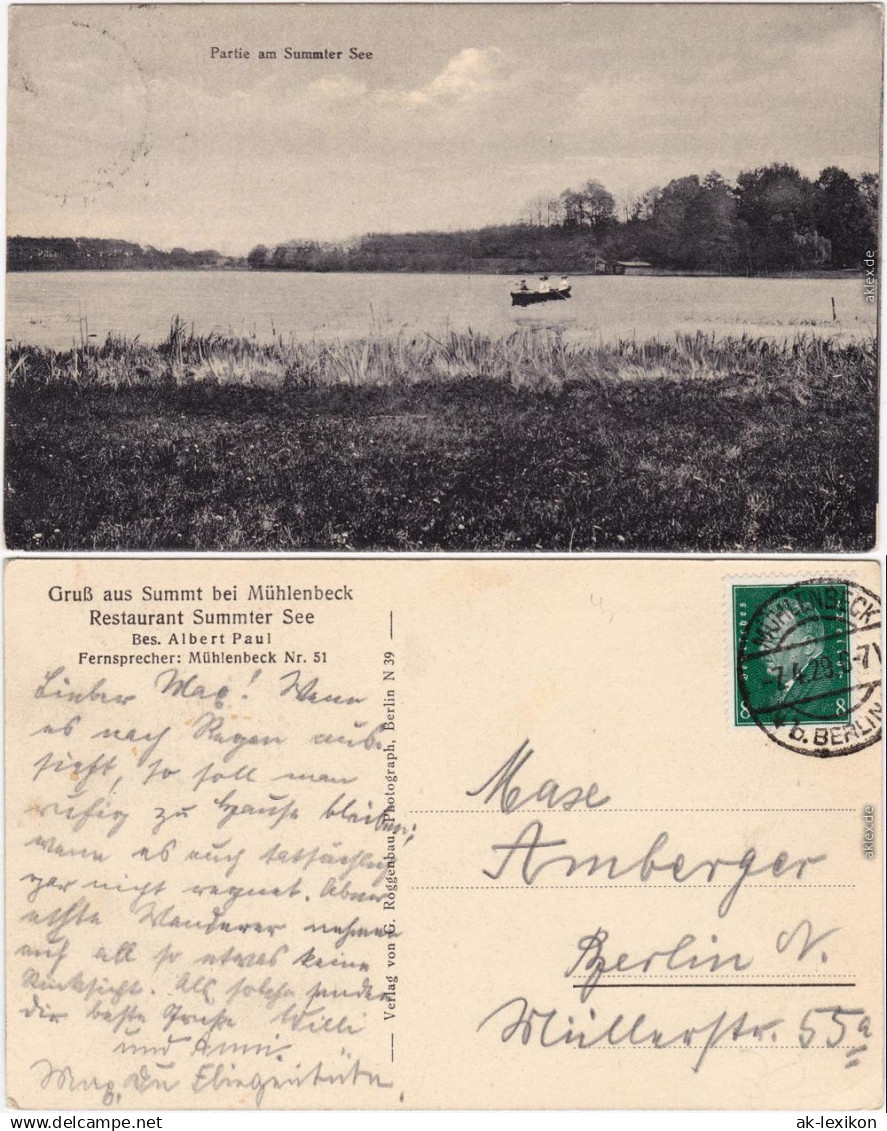 Partie am Summter See
aklex.de
Gruß aus Summt bei Mühlenbeck
Restaurant Summter See
Bes. Albert Paul
Fernsprecher: Mühlenbeck Nr. 51
Lieber Max! Wenn
es nach Regen aus-
sieht, so soll man
ruhig zu Hause bleiben,
wenn es auch tatsächlich
gar nicht regnet. Aber
echte Wanderer nehmen
auf all so etwas keine
Rücksicht. Als solche senden
dir beste Grüße Willi
und Anni.
Max, Du Fliegentüte
Verlag von G. Roggenbau, Photograph, Berlin N 39
Deutsches Reich
8 8
MÜHLENBECK
-7.4.29.6-7V
b. BERLIN
Maxe
Amberger
Berlin N.
Müllerstr. 55a
aklex.de
www.ak-ansichtskarten.de
ak-lexikon